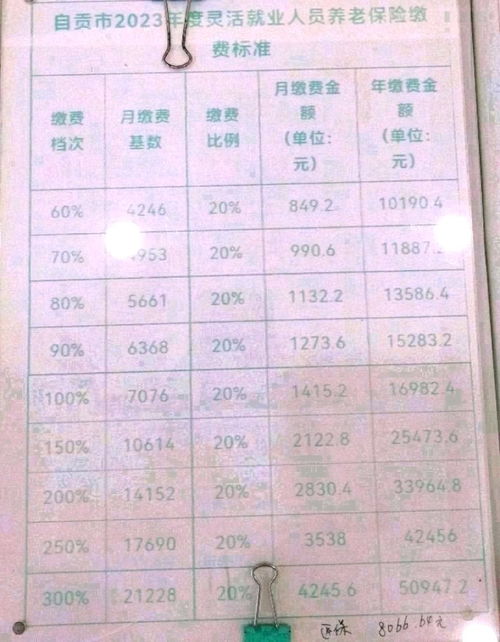 自贡市2023年度灵活就业人员养老保险缴
费标准
缴费档次 月缴费基数 缴费比例 月缴费金额(单位:元) 年缴费金额(单位:元)
60% 4246 20% 849.2 10190.4
70% 953 20% 990.6 11887.
80% 5661 20% 1132.2 13586.4
90% 6368 20% 1273.6 15283.2
100% 7076 20% 1415.2 16982.4
150% 10614 20% 2122.8 25473.6
200% 14152 20% 2830.4 33964.8
250% 17690 20% 3538 42456
300% 21228 20% 4245.6 50947.2
医保 8066.64元